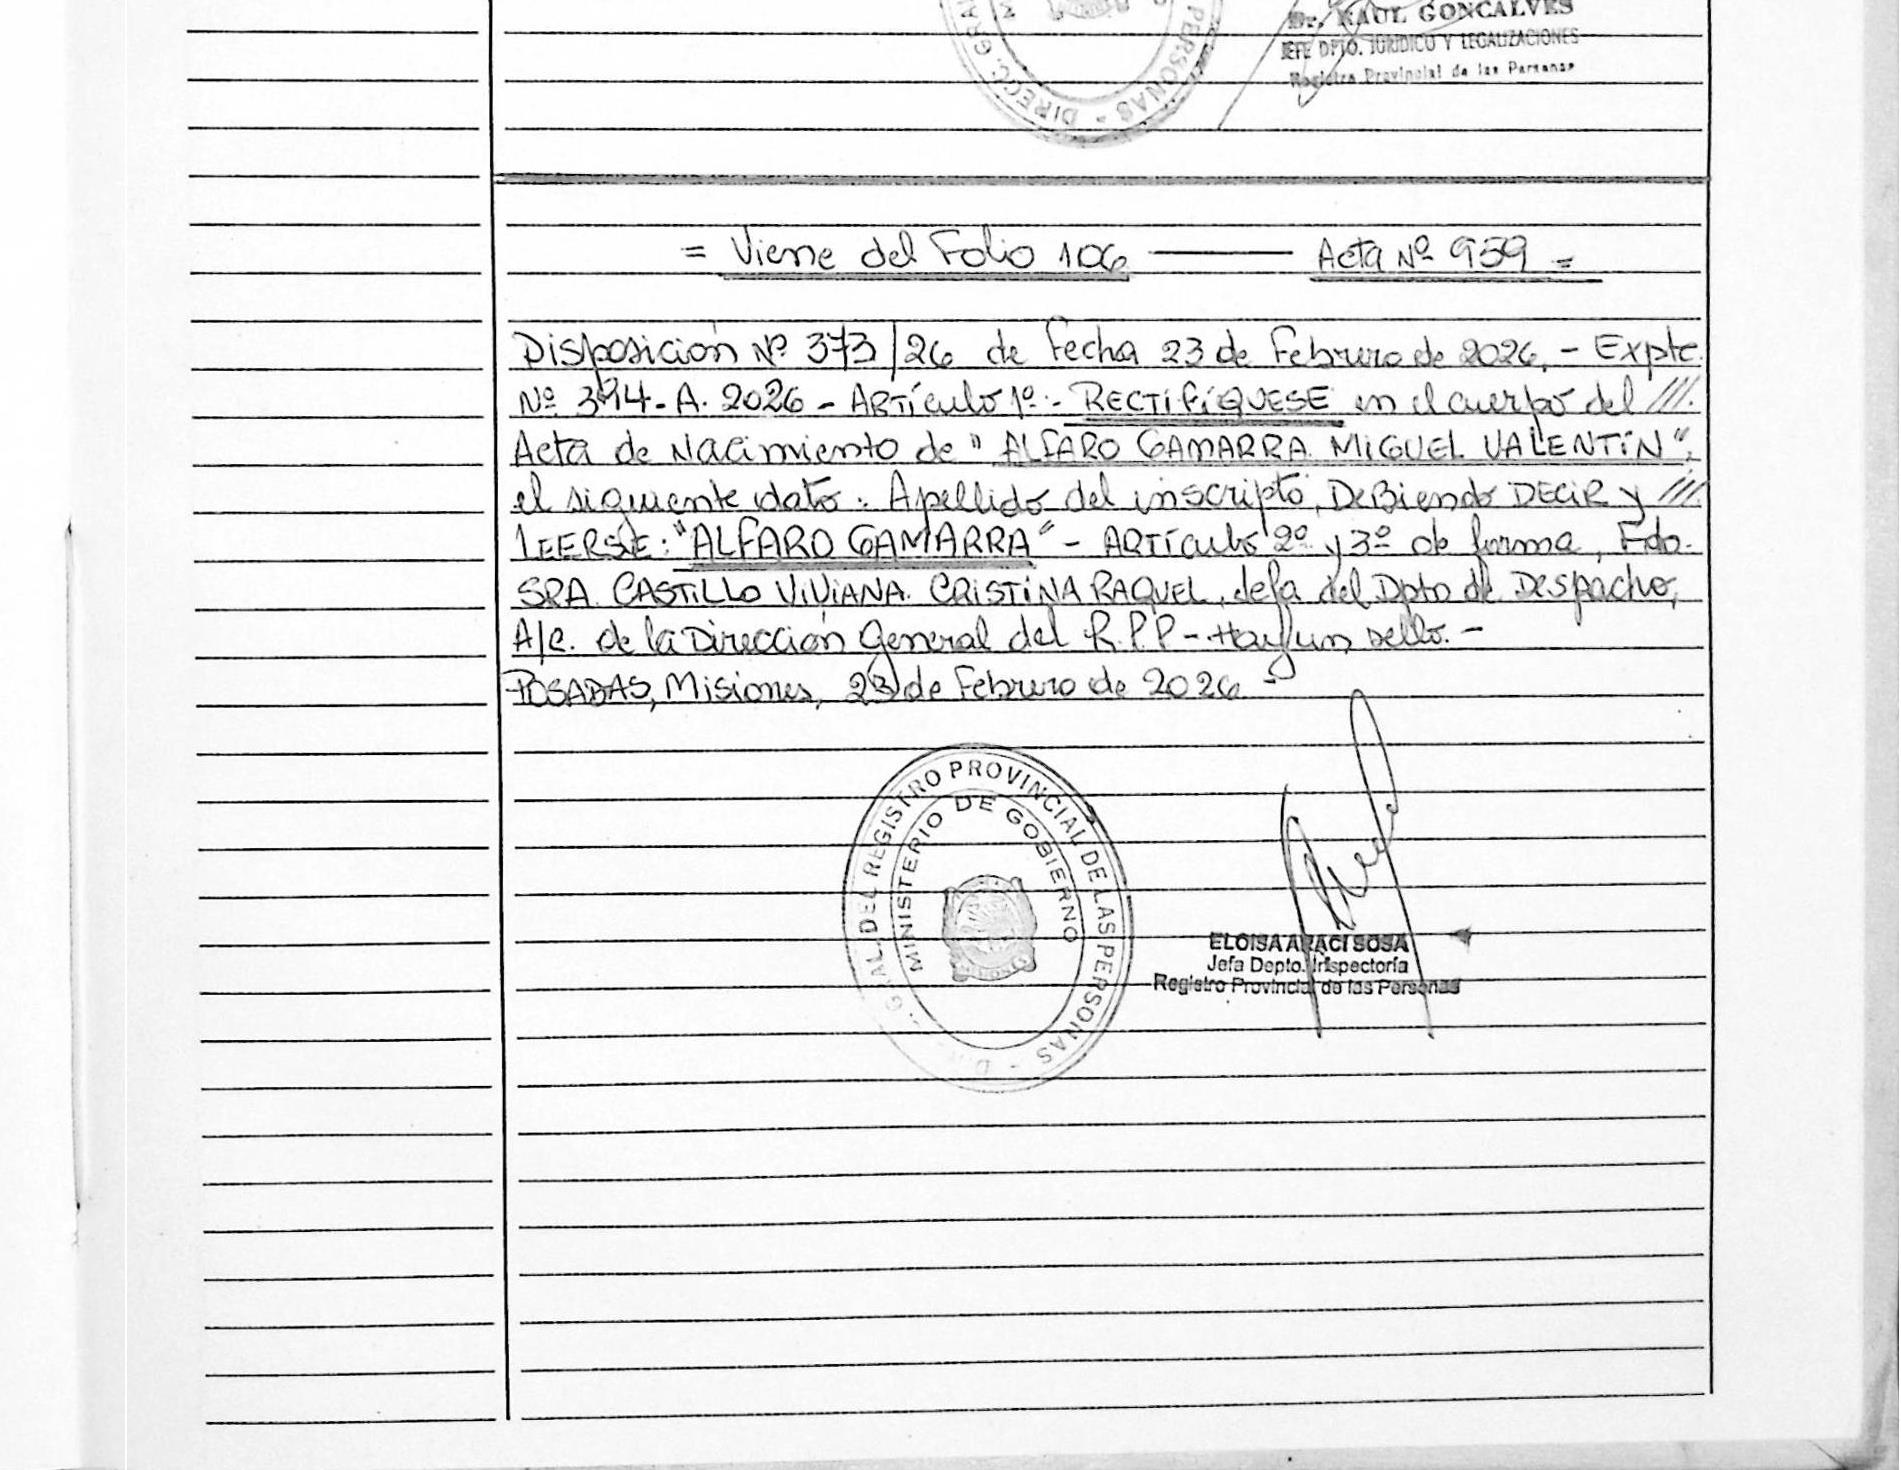 Dr. RAUL GONCALVES
JEFE DPTO. JURIDICO Y LEGALIZACIONES
Registro Provincial de las Personas
PERSONAS - DIRECC. GRAL
= Viene del Folio 106 ——— Acta Nº 959 =
Disposición Nº 373/26 de fecha 23 de Febrero de 2026. - Expte.
Nº 394-A. 2026 - ARTículo 1º - RECTIFÍQUESE en el cuerpo del ///.
Acta de Nacimiento de "ALFARO GAMARRA MIGUEL VALENTÍN",
el siguiente dato: Apellido del inscripto, DeBiendo DECIR y ///.
LEERSE: "ALFARO GAMARRA" - ARTículo 2º y 3º de forma, Fdo.
SRA. CASTILLO VIVIANA CRISTINA RAQUEL, Jefa del Dpto de Despacho,
A/C. de la Dirección General del R.P.P - Hay un sello. -
POSADAS, Misiones, 23 de Febrero de 2026 -
GRAL. DEL REGISTRO PROVINCIAL DE LAS PERSONAS - D
MINISTERIO DE GOBIERNO
ELOISA ARACI SOSA
Jefa Depto. Inspectoría
Registro Provincial de las Personas